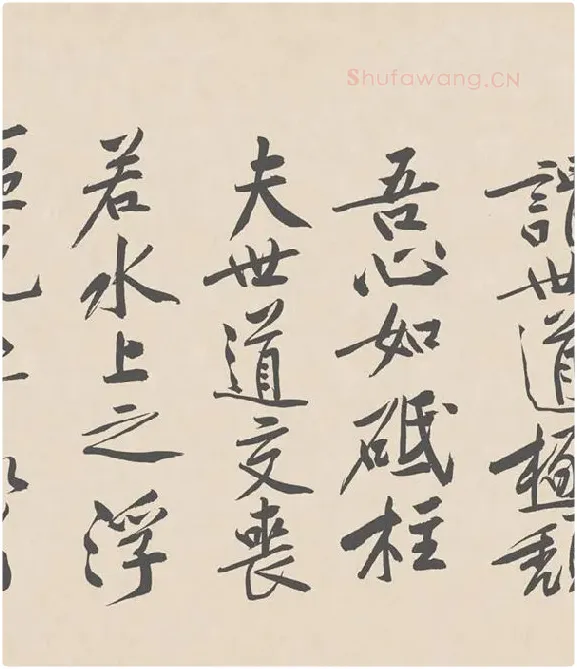 Shufawang.CN
謂世道極頹
吾心如砥柱
夫世道交喪
若水上之浮